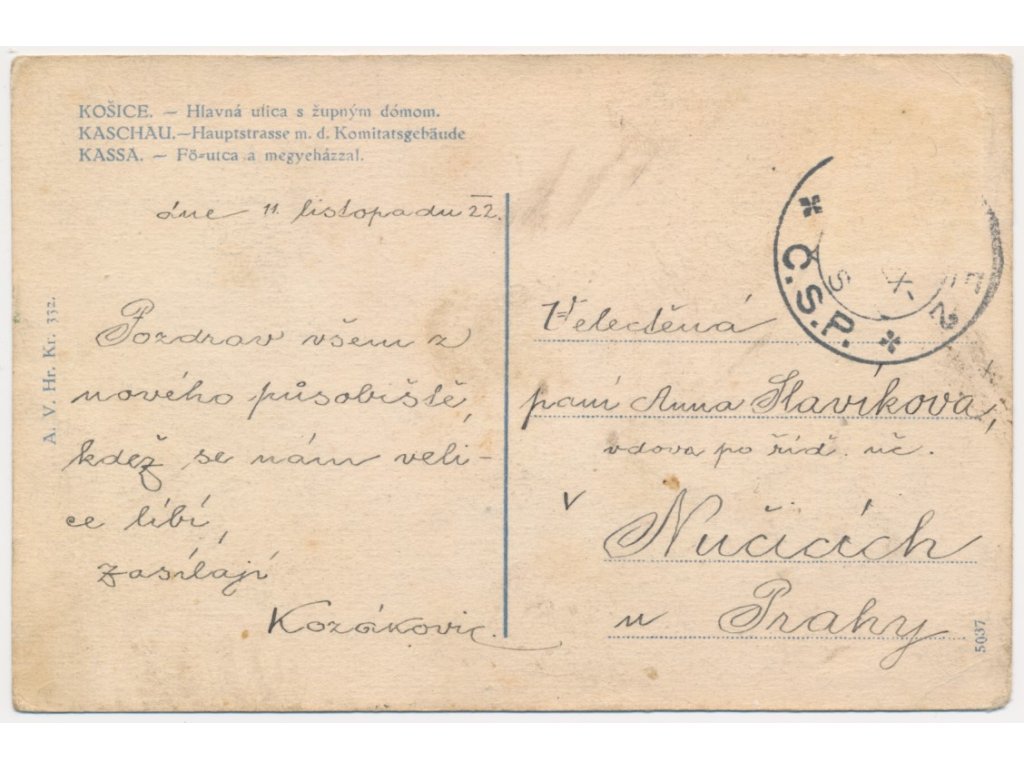 KOŠICE. — Hlavná ulica s župným dómom.
KASCHAU.—Hauptstrasse m. d. Komitatsgebäude
KASSA. — Fö-utca a megyeházzal.
dne 11. listopadu 22.
Pozdrav všem z
nového působiště,
kdež se nám veli-
ce líbí,
zasílají
Kozákovic.
A. V. Hr. Kr. 332.
Č.S.P.
Velectěná
paní Anna Slavíkova,
vdova po říd. uč.
v
Nučicích
u Prahy
5037